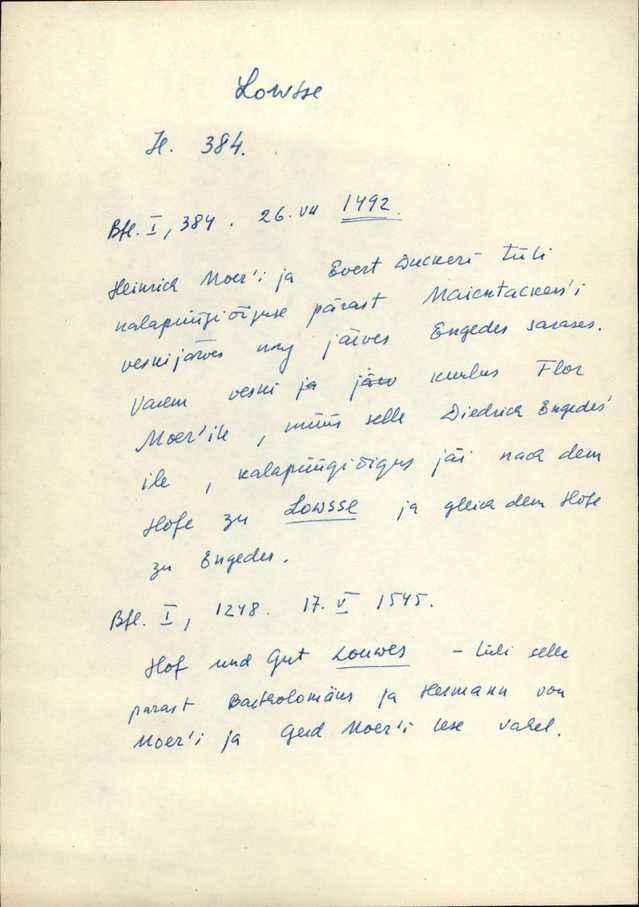 Lowsse
H. 384.
Bfl. I, 384. 26. VII 1492.
Heinrich Moer'i ja Evert Duckeri tüli
kalapüügiõiguse pärast Maientacken'i
veskijärves ning järves Engedes sarases.
Varem veski ja järv kuulus Flor
Moer'ile, müüs selle Diedrich Engedes'
ile, kalapüügiõigus jäi nach dem
Hofe zu Lowsse ja gleich dem Hofe
zu Engedes.
Bfl. I, 1248. 17. V 1545.
Hof und Gut Louwes – tüli selle
pärast Bartholomäus ja Hermann von
Moer'i ja Gerd Moer'i lese vahel.